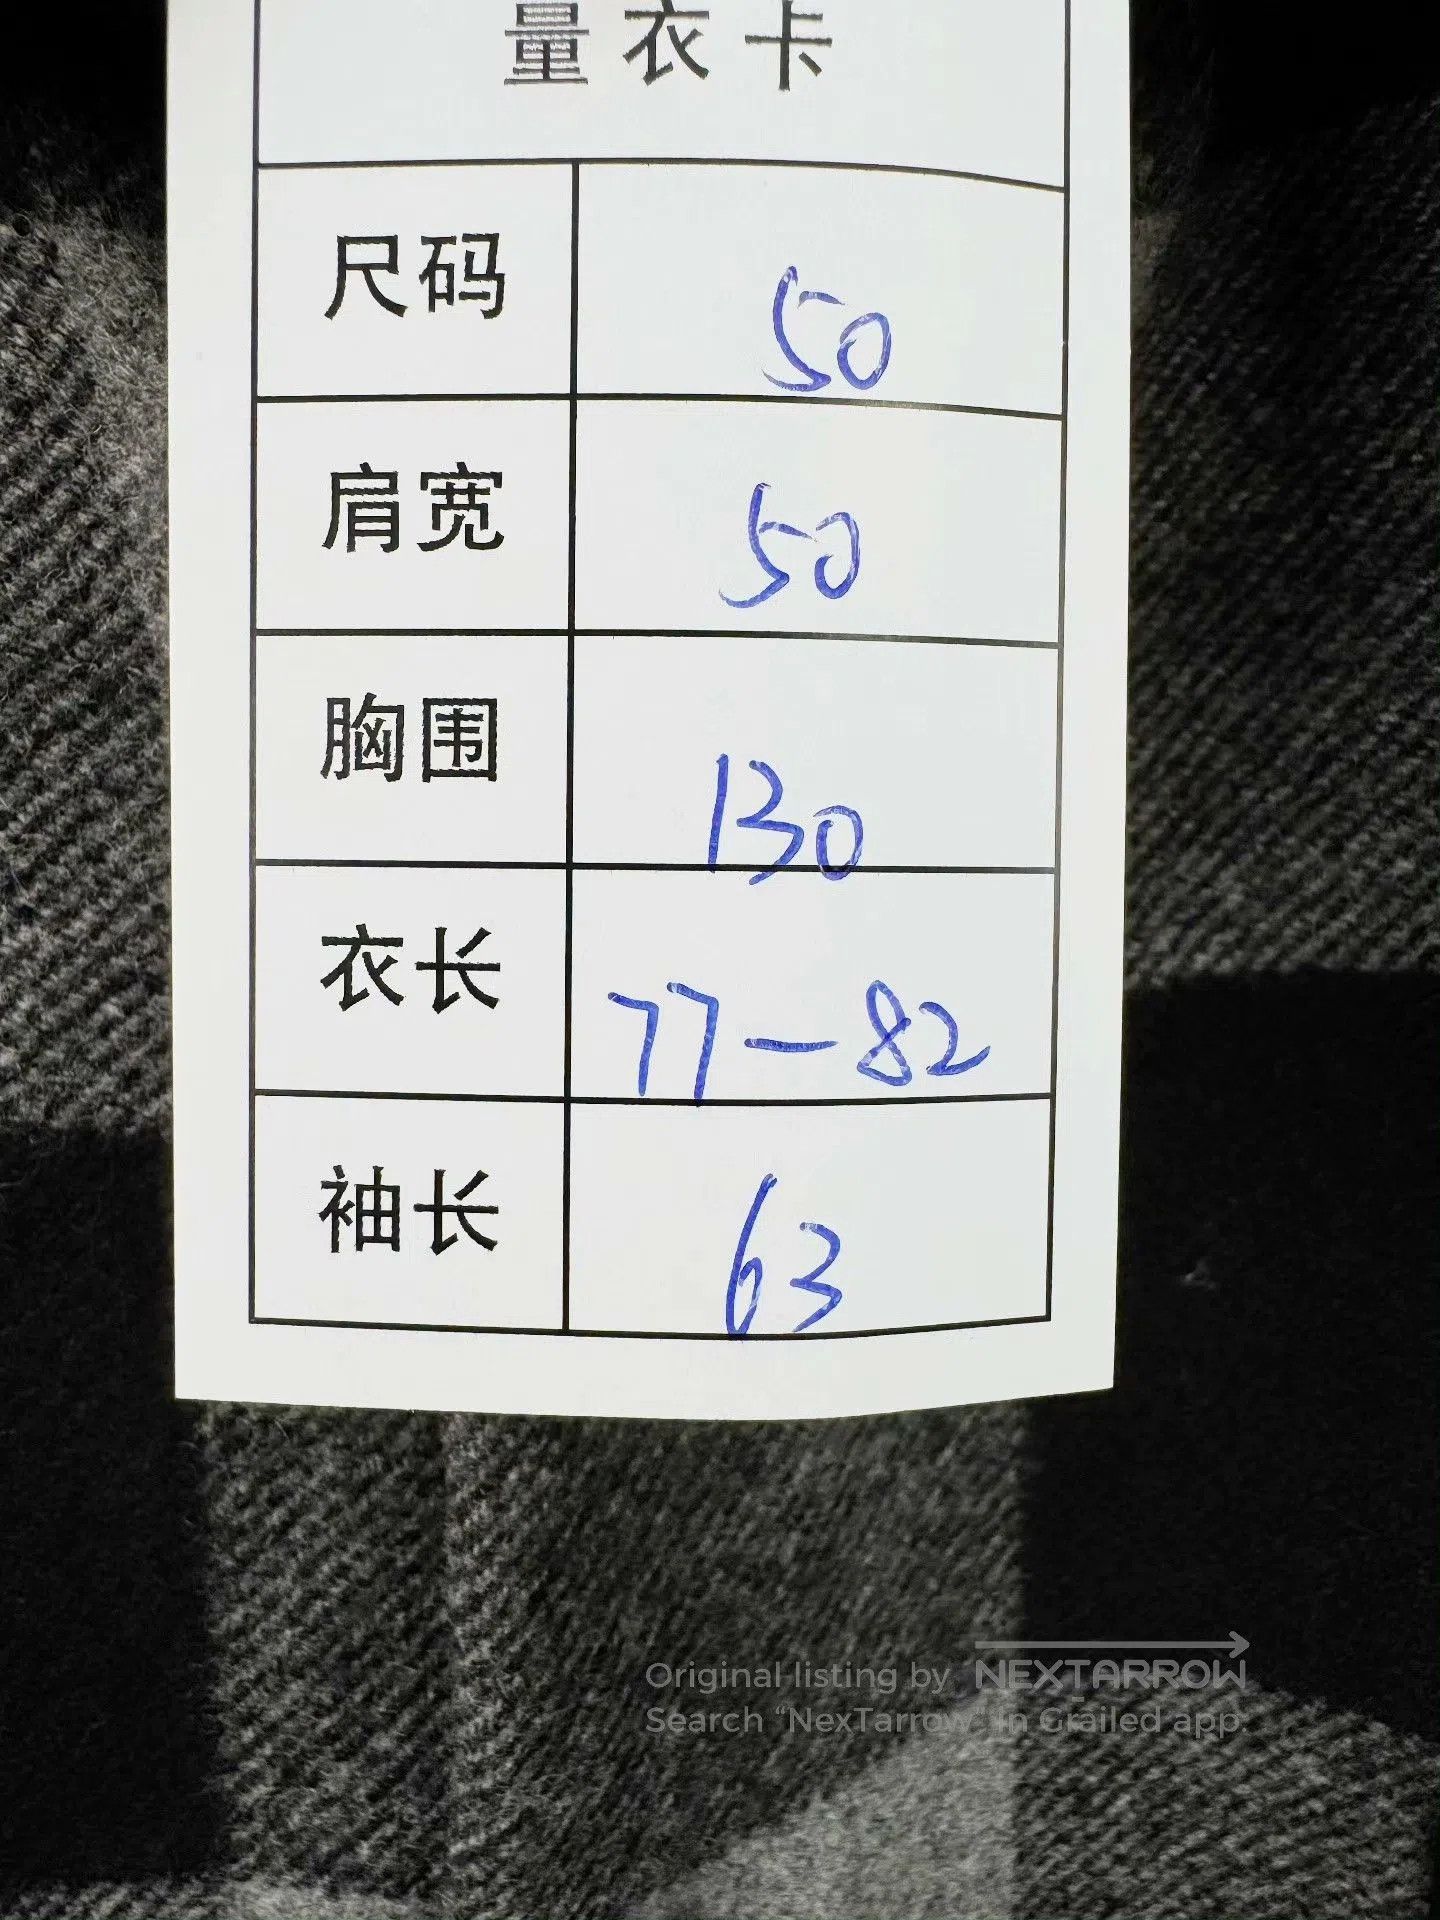 量衣卡
尺码 50
肩宽 50
胸围 130
衣长 77-82
袖长 63
Original listing by NEXTARROW
Search “NexTarrow” in Grailed app.